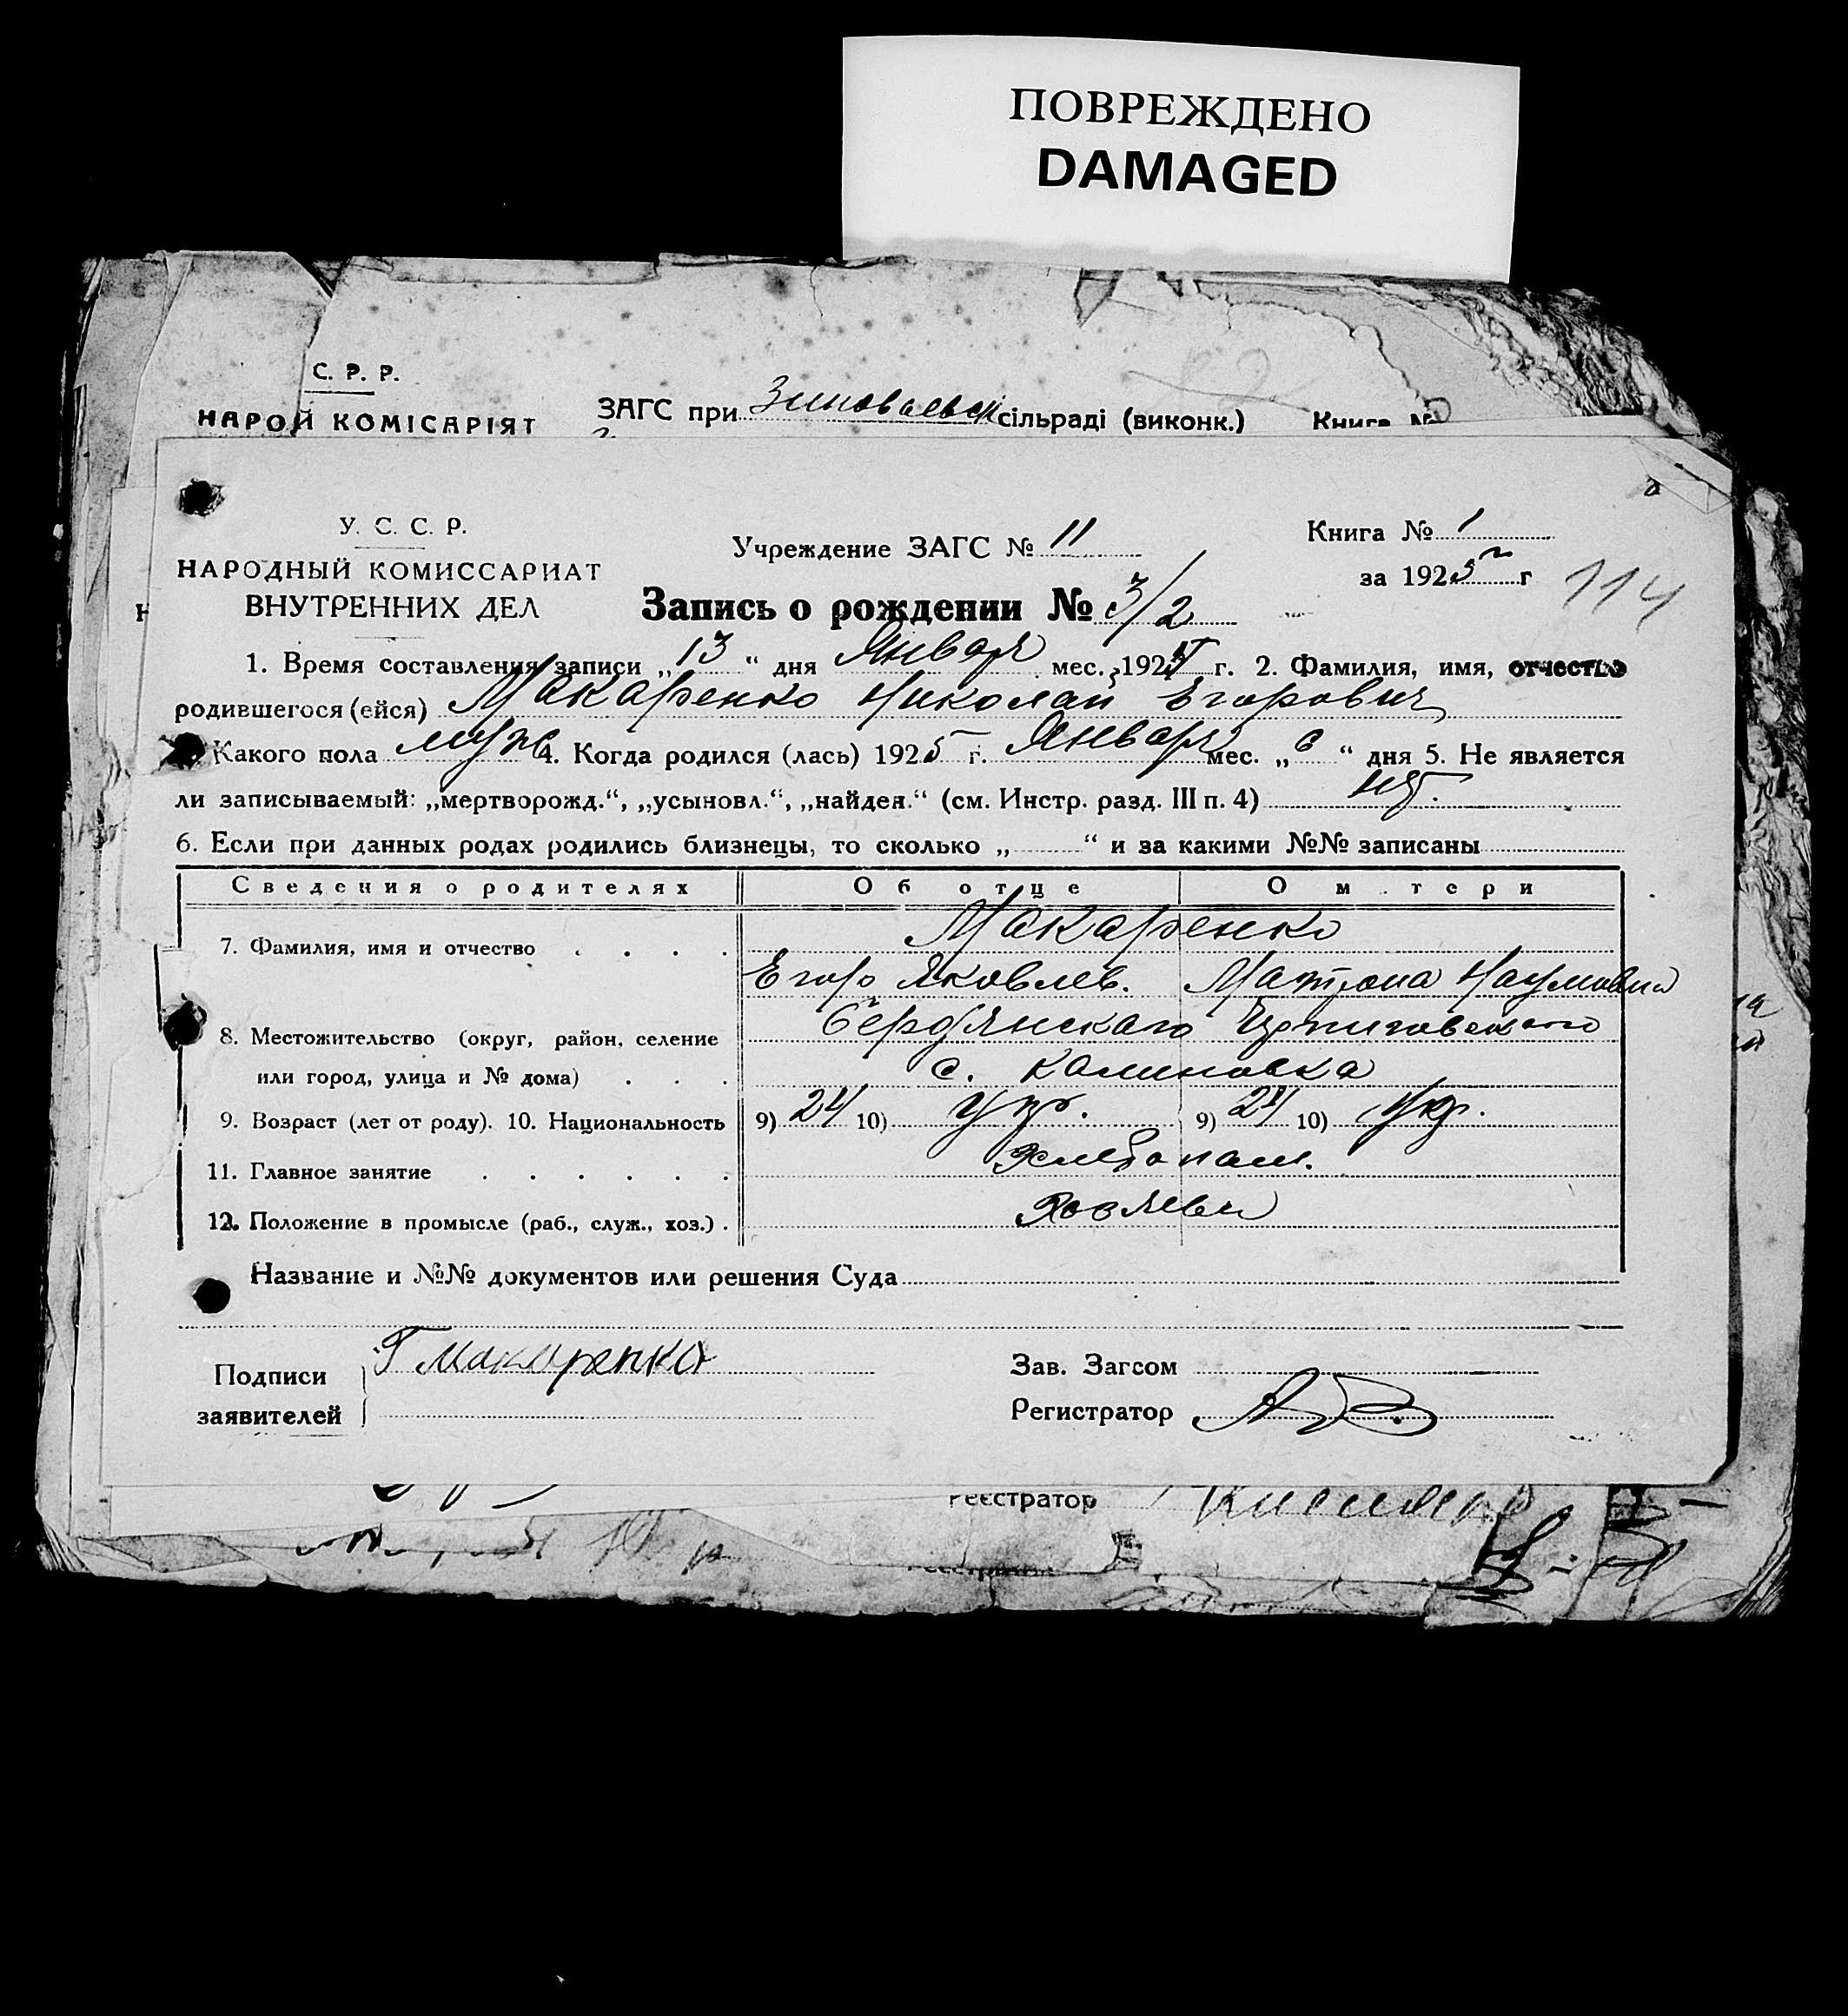 ПОВРЕЖДЕНО
DAMAGED
С. Р. Р.
НАРОЙ КОМІСАРІЯТ ЗАГС при Зиновьевск сільраді (виконк.) Книга №
У. С. С. Р.
НАРОДНЫЙ КОМИССАРИАТ
ВНУТРЕННИХ ДЕЛ
Учреждение ЗАГС № 11
Книга № 1
за 1925 г
114
Запись о рождении № 3/2
1. Время составления записи „13“ дня Января мес. 1925 г. 2. Фамилия, имя, отчество
родившегося (ейся) Макаренко Николай Егорович
Какого пола муж 4. Когда родился (лась) 1925 г. Января мес. „6“ дня 5. Не является
ли записываемый: „мертворожд.“, „усыновл.“, „найден.“ (см. Инстр. разд. III п. 4)
6. Если при данных родах родились близнецы, то сколько „ “ и за какими №№ записаны
Сведения о родителях Об отце О м тери
7. Фамилия, имя и отчество Макаренко
Егор Яковлев. Матрона Наумовна
8. Местожительство (округ, район, селение Бердянского Черниговского
или город, улица и № дома) с. Калиновка
9. Возраст (лет от роду). 10. Национальность 9) 24 10) Укр. 9) 24 10) Укр.
11. Главное занятие Хлебопаш.
12. Положение в промысле (раб., служ., хоз.) Хозяева
Название и №№ документов или решения Суда
Подписи
заявителей
Г Макаренко
Зав. Загсом
Регистратор
Реєстратор